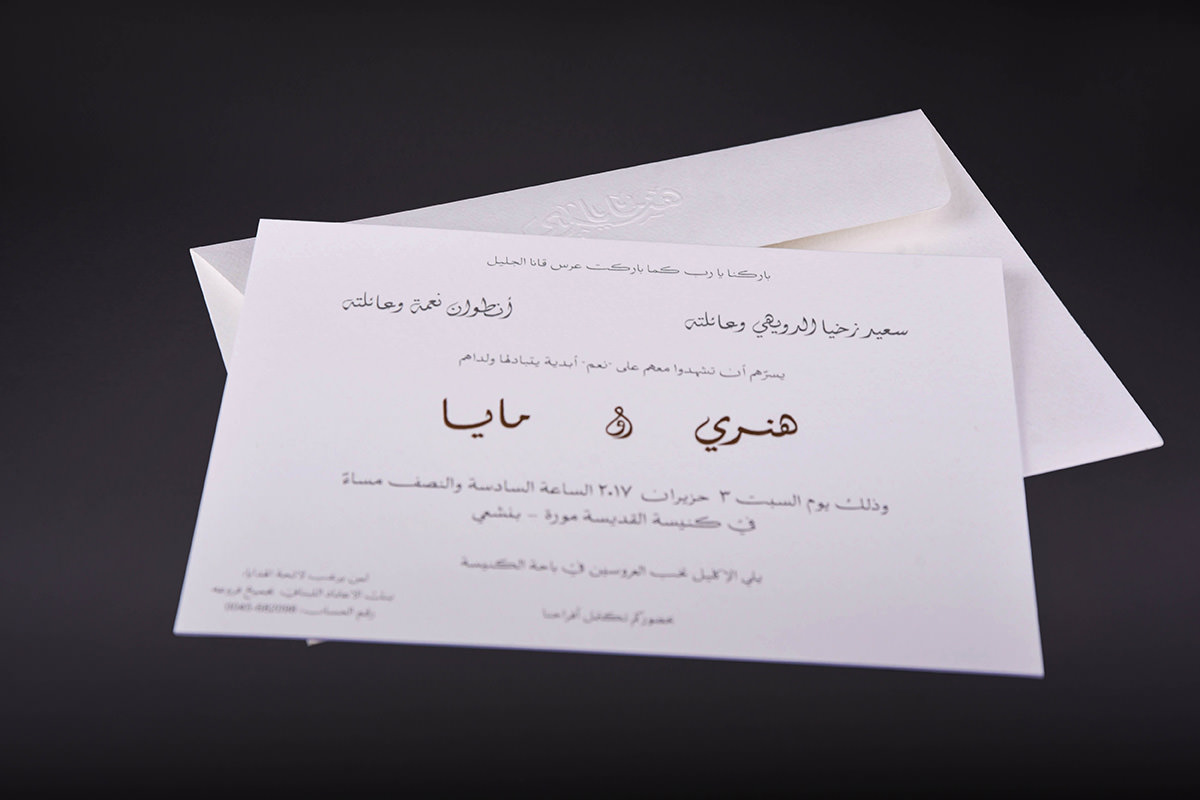 باركنا يا رب كما باركت عرس قانا الجليل
سعيد زخيا الدويهي وعائلته
أنطوان نعمة وعائلته
يسرّهم أن تشهدوا معهم على "نعم" أبدية يتبادلها ولداهم
هنري و مايا
وذلك يوم السبت ٣ حزيران ٢٠١٧ الساعة السادسة والنصف مساءً
في كنيسة القديسة مورة - بنشعي
يلي الإكليل نخب العروسين في باحة الكنيسة
حضوركم تكتمل أفراحنا
لمن يرغب لائحة الهدايا
بنك الاعتماد اللبناني، جميع فروعه
رقم الحساب: